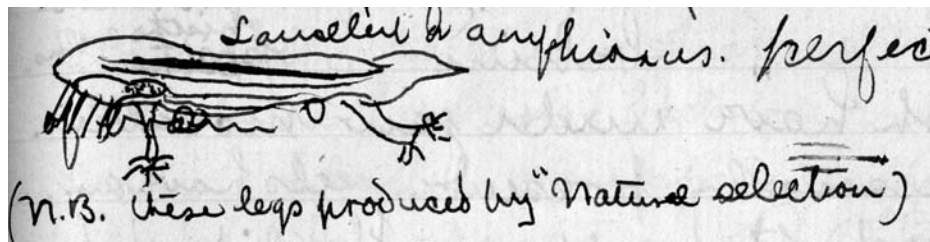 Lancelet or amphioxus. perfec
(N.B. these legs produced by "Natural selection)